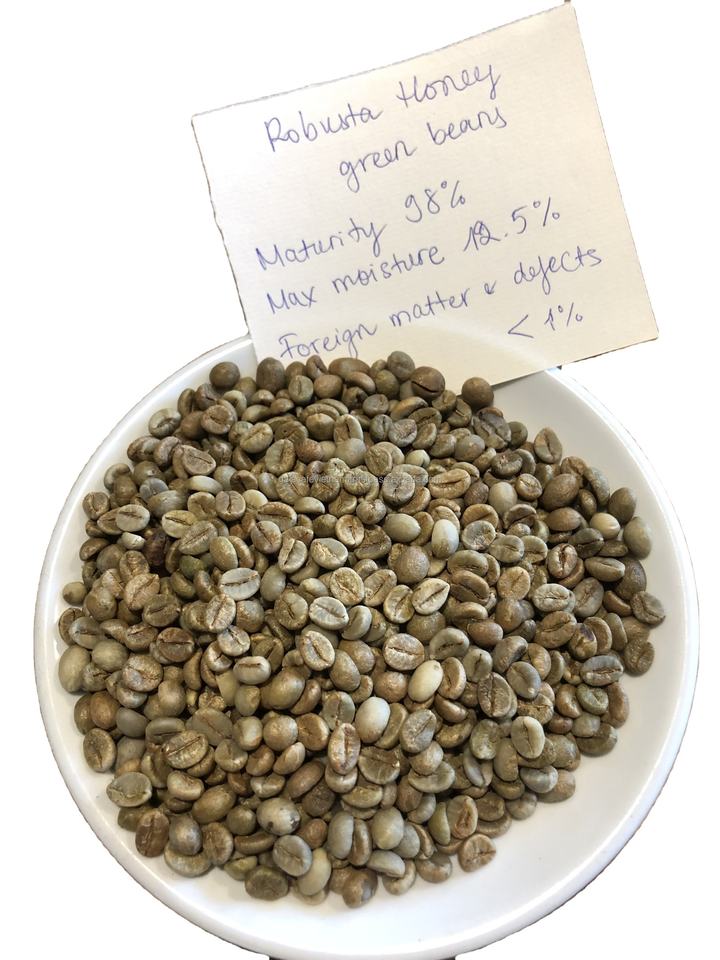 Robusta Honey
green beans
Maturity 98%
Max moisture 12.5%
Foreign matter & defects
< 1%